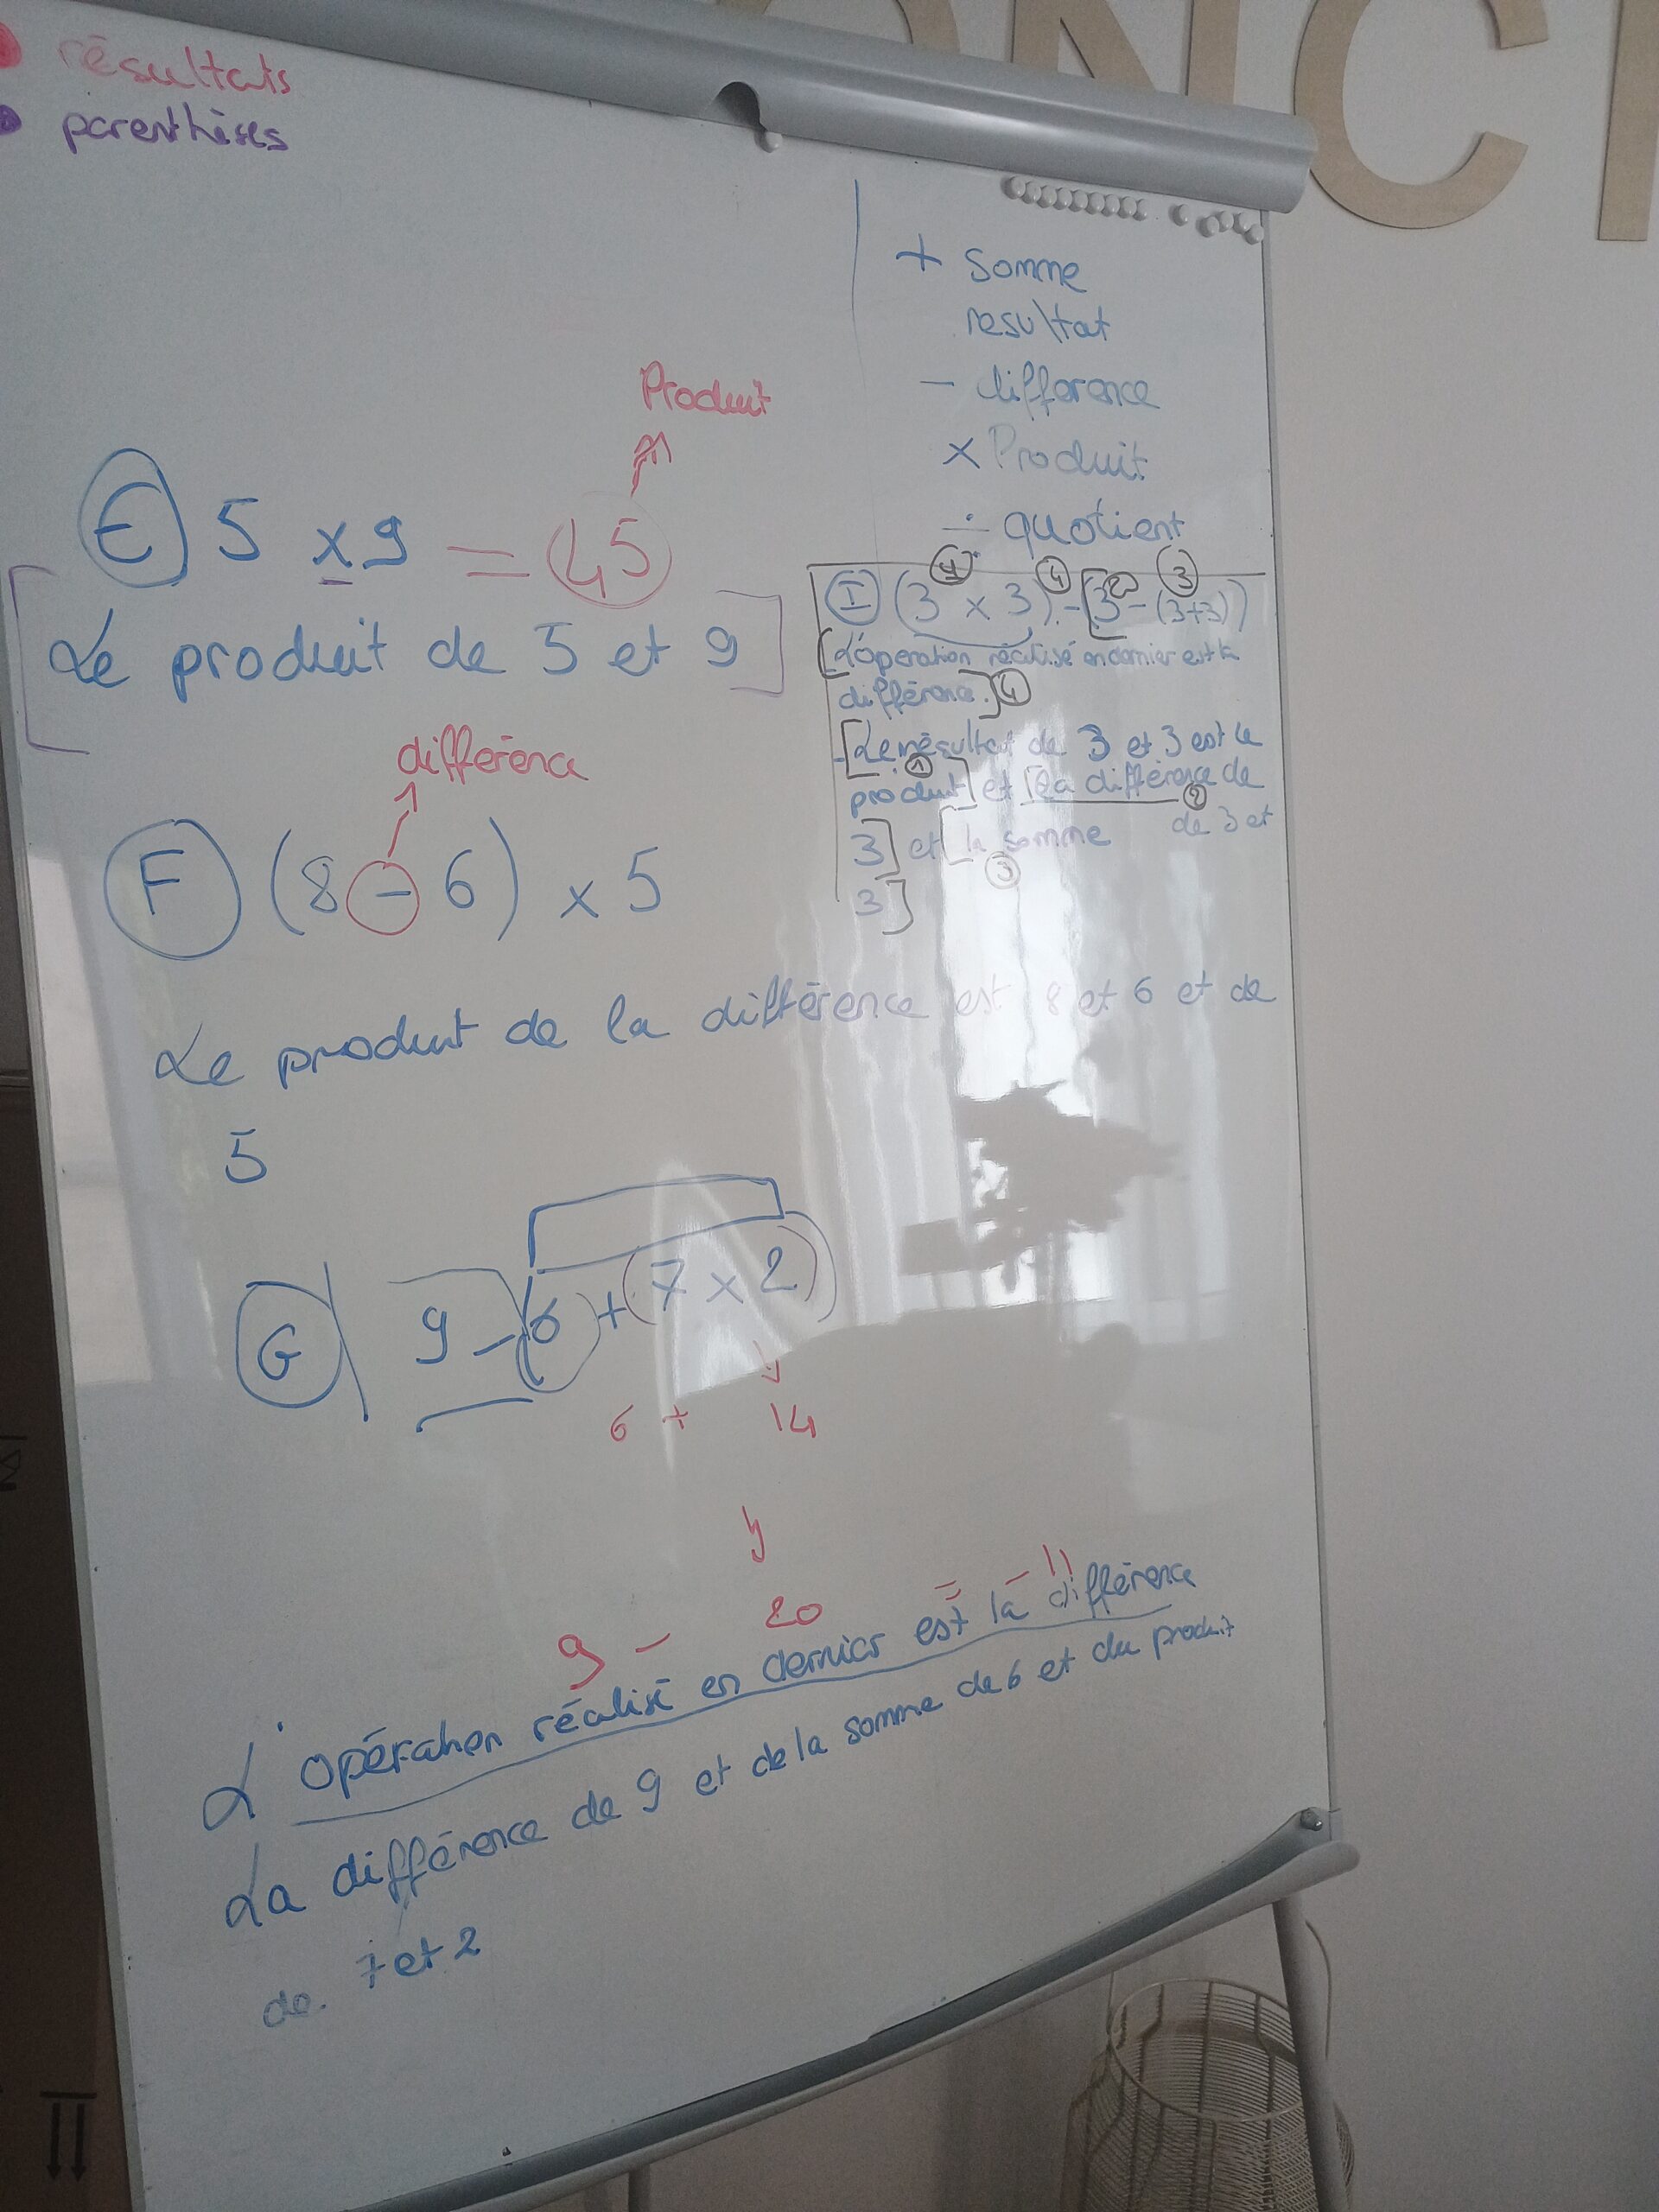 ONCI
résultats
parenthèses
+ somme
resultat
- difference
× Produit
÷ quotient
Produit
E 5 × 9 = 45
Le produit de 5 et 9
I (3 × 3) - (3 - (3+3))
4 4 2 3
L'operation réalisé en dernier est la
différence. 4
Le résultat de 3 et 3 est le
1
produit et la différence de
2
3 et la somme de 3 et
3
3
différence
F (8 - 6) × 5
Le produit de la différence est 8 et 6 et de
5
G 9 - (6) + (7 × 2)
6 + 14
9 - 20 = -11
L'opération réalisé en dernier est la différence
La différence de 9 et de la somme de 6 et du produit
de 7 et 2